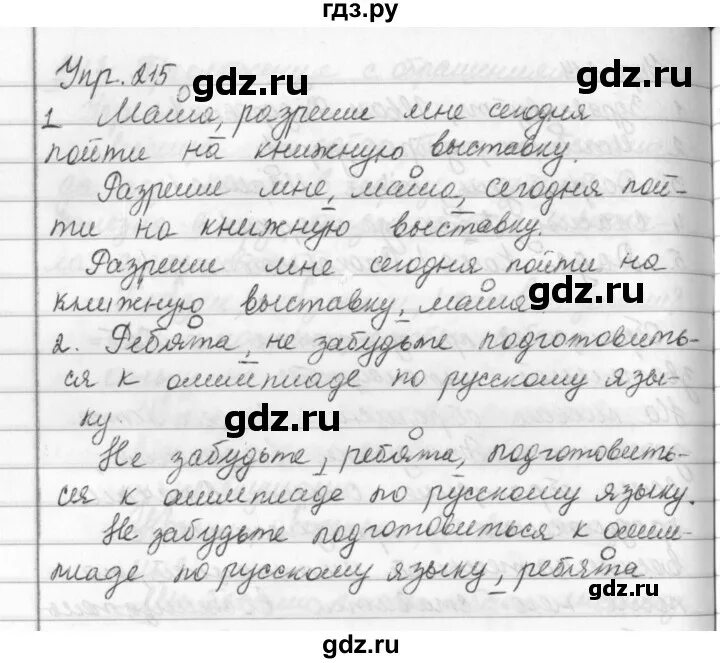 гдз.ру
Упр. 215
gdz.ru gdz.ru
1 Маша, разреши мне сегодня
пойти на книжную выставку.
gdz.ru gdz.ru
Разреши мне, маша, сегодня пой-
ти на книжную выставку.
Разреши мне сегодня пойти на
книжную выставку, маша
gdz.ru
2. Ребята, не забудьте подготовить-
ся к олимпиаде по русскому язы-
ку.
gdz.ru
Не забудьте, ребята, подготовить-
ся к олимпиаде по русскому языку.
gdz.ru gdz.ru
Не забудьте подготовиться к олим-
пиаде по русскому языку, ребята
gdz.ru